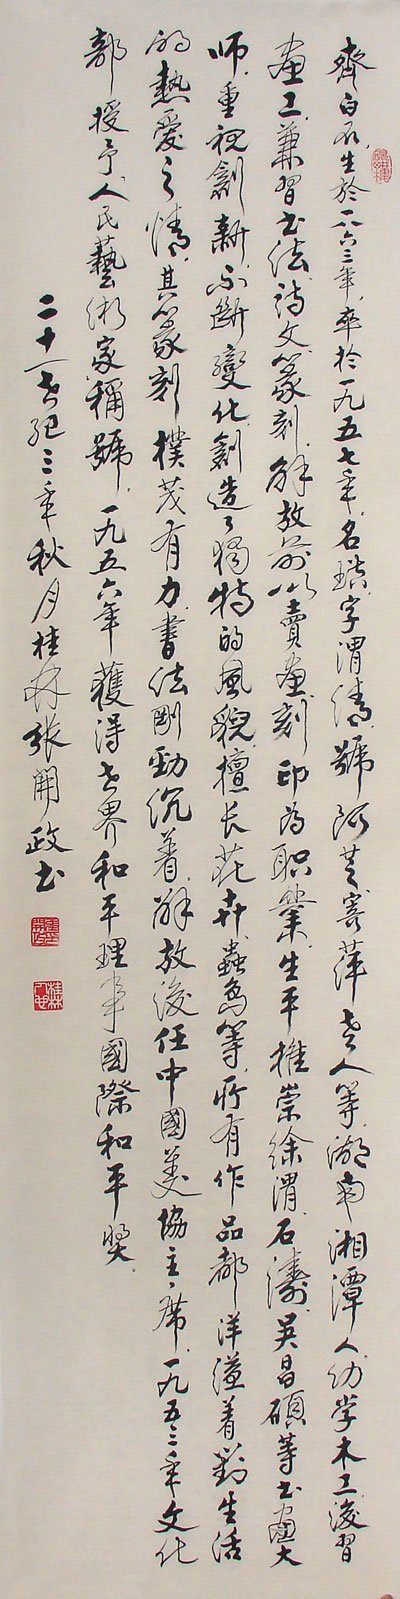 齊白石,生於一八六三年,卒於一九五七年,名璜,字渭清,號阿芝、寄萍老人等,湖南湘潭人,幼學木工,後習
画工,兼習书法、詩文、篆刻,解放前以賣画、刻印為职業,生平推崇徐渭、石濤、吴昌碩等书画大
师,重視創新,不斷變化,創造了獨特的風貌,擅长花卉、蟲鳥等,所有作品都洋溢着對生活
的熱愛之情,其篆刻樸茂有力,書法剛勁沉着,解放後任中國美協主席,一九五三年文化
部授予人民藝術家稱號,一九五六年獲得世界和平理事國際和平奖。
二十一世紀三年秋月桂林張開政书